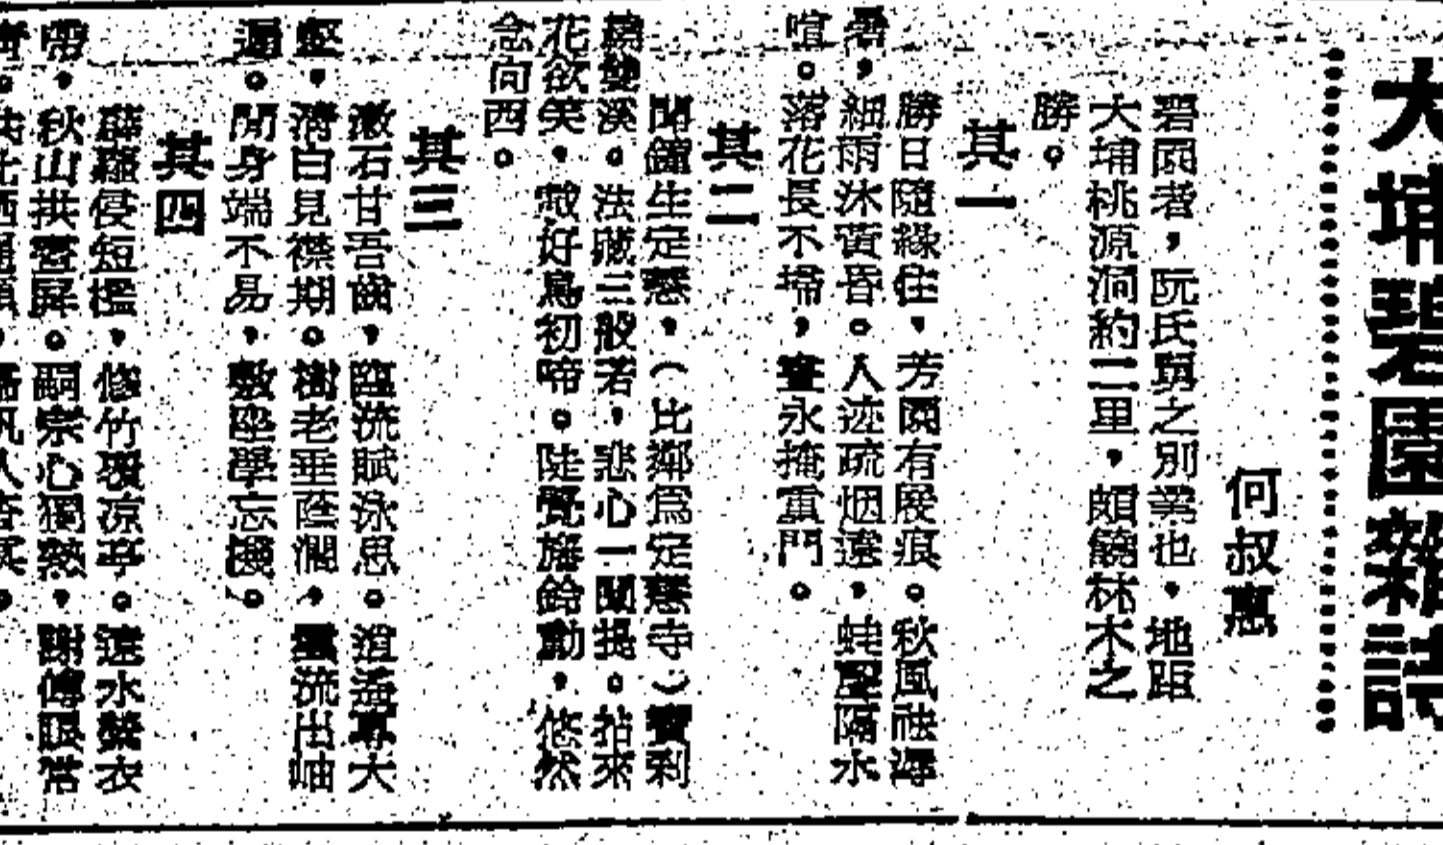 大埔碧園雜詩
何叔惠
碧園者,阮氏舅之別業也,地距
大埔桃源洞約二里,頗饒林木之
勝。
其一
勝日隨緣住,芳園有屐痕。秋風祛溽
暑,細雨沐黃昏。人迹疏烟遠,蛙聲隔水
喧。落花長不埽,晝永掩重門。
其二
聞鐘生定慧,(比鄰為定慧寺)寶刹
溪。法藏三般若,悲心一闡提。拈來
花欲笑,戢好鳥初啼。陡覺旛鈴動,悠然
念向西。
其三
漱石甘吾齒,臨流賦泳思。逍遙專大
壑,清白見襟期。樹老垂蔭濶,雲流出岫
遲。閒身端不易,敷座學忘機。
其四
薜蘿侵短檻,修竹覆凉亭。遠水縈衣
帶,秋山拱翠屏。嗣宗心獨熱,謝傅眼常
青。